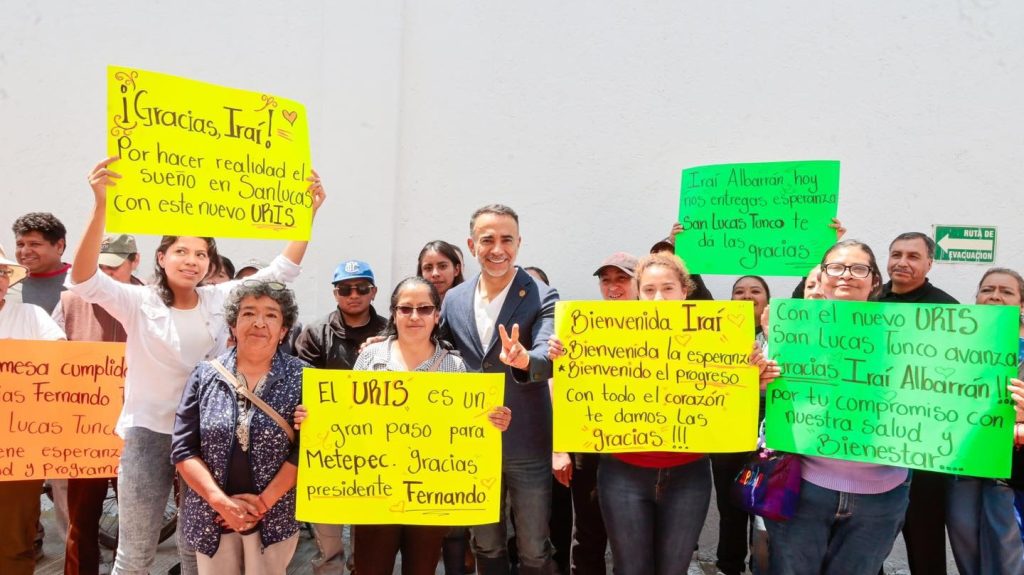 ¡Gracias, Iraí!
Por hacer realidad el
sueño en San Lucas
con este nuevo URIS
mesa cumplida
Fernando
Lucas Tunco
d y programa
El URIS es un
gran paso para
Metepec. gracias
presidente Fernando.
Bienvenida Iraí
Bienvenida la esperanza
*Bienvenido el progreso
con todo el corazón
te damos las
gracias !!!
Iraí Albarrán hoy
nos entregas esperanza
San Lucas Tunco te
da las gracias
Con el nuevo URIS
San Lucas Tunco avanza
gracias Iraí Albarrán !!
por tu compromiso con
nuestra salud y
Bienestar....
RUTA DE
EVACUACIÓN